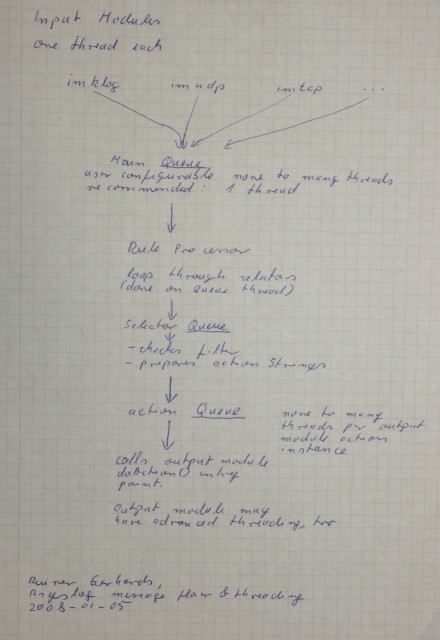 Input Modules
one thread each
imklog imudp imtcp ...
Main Queue
user configurable none to many threads
recommended: 1 thread
Rule Processor
loop through selectors
(done on Queue thread)
Selector Queue
- checks filter
- prepares action Strings
action Queue
none to many
threads per output
module action
instance
calls output module
doAction() entry
point.
Output module may
have advanced threading, too
Rainer Gerhards,
Rsyslog message flow & threading
2008-01-05